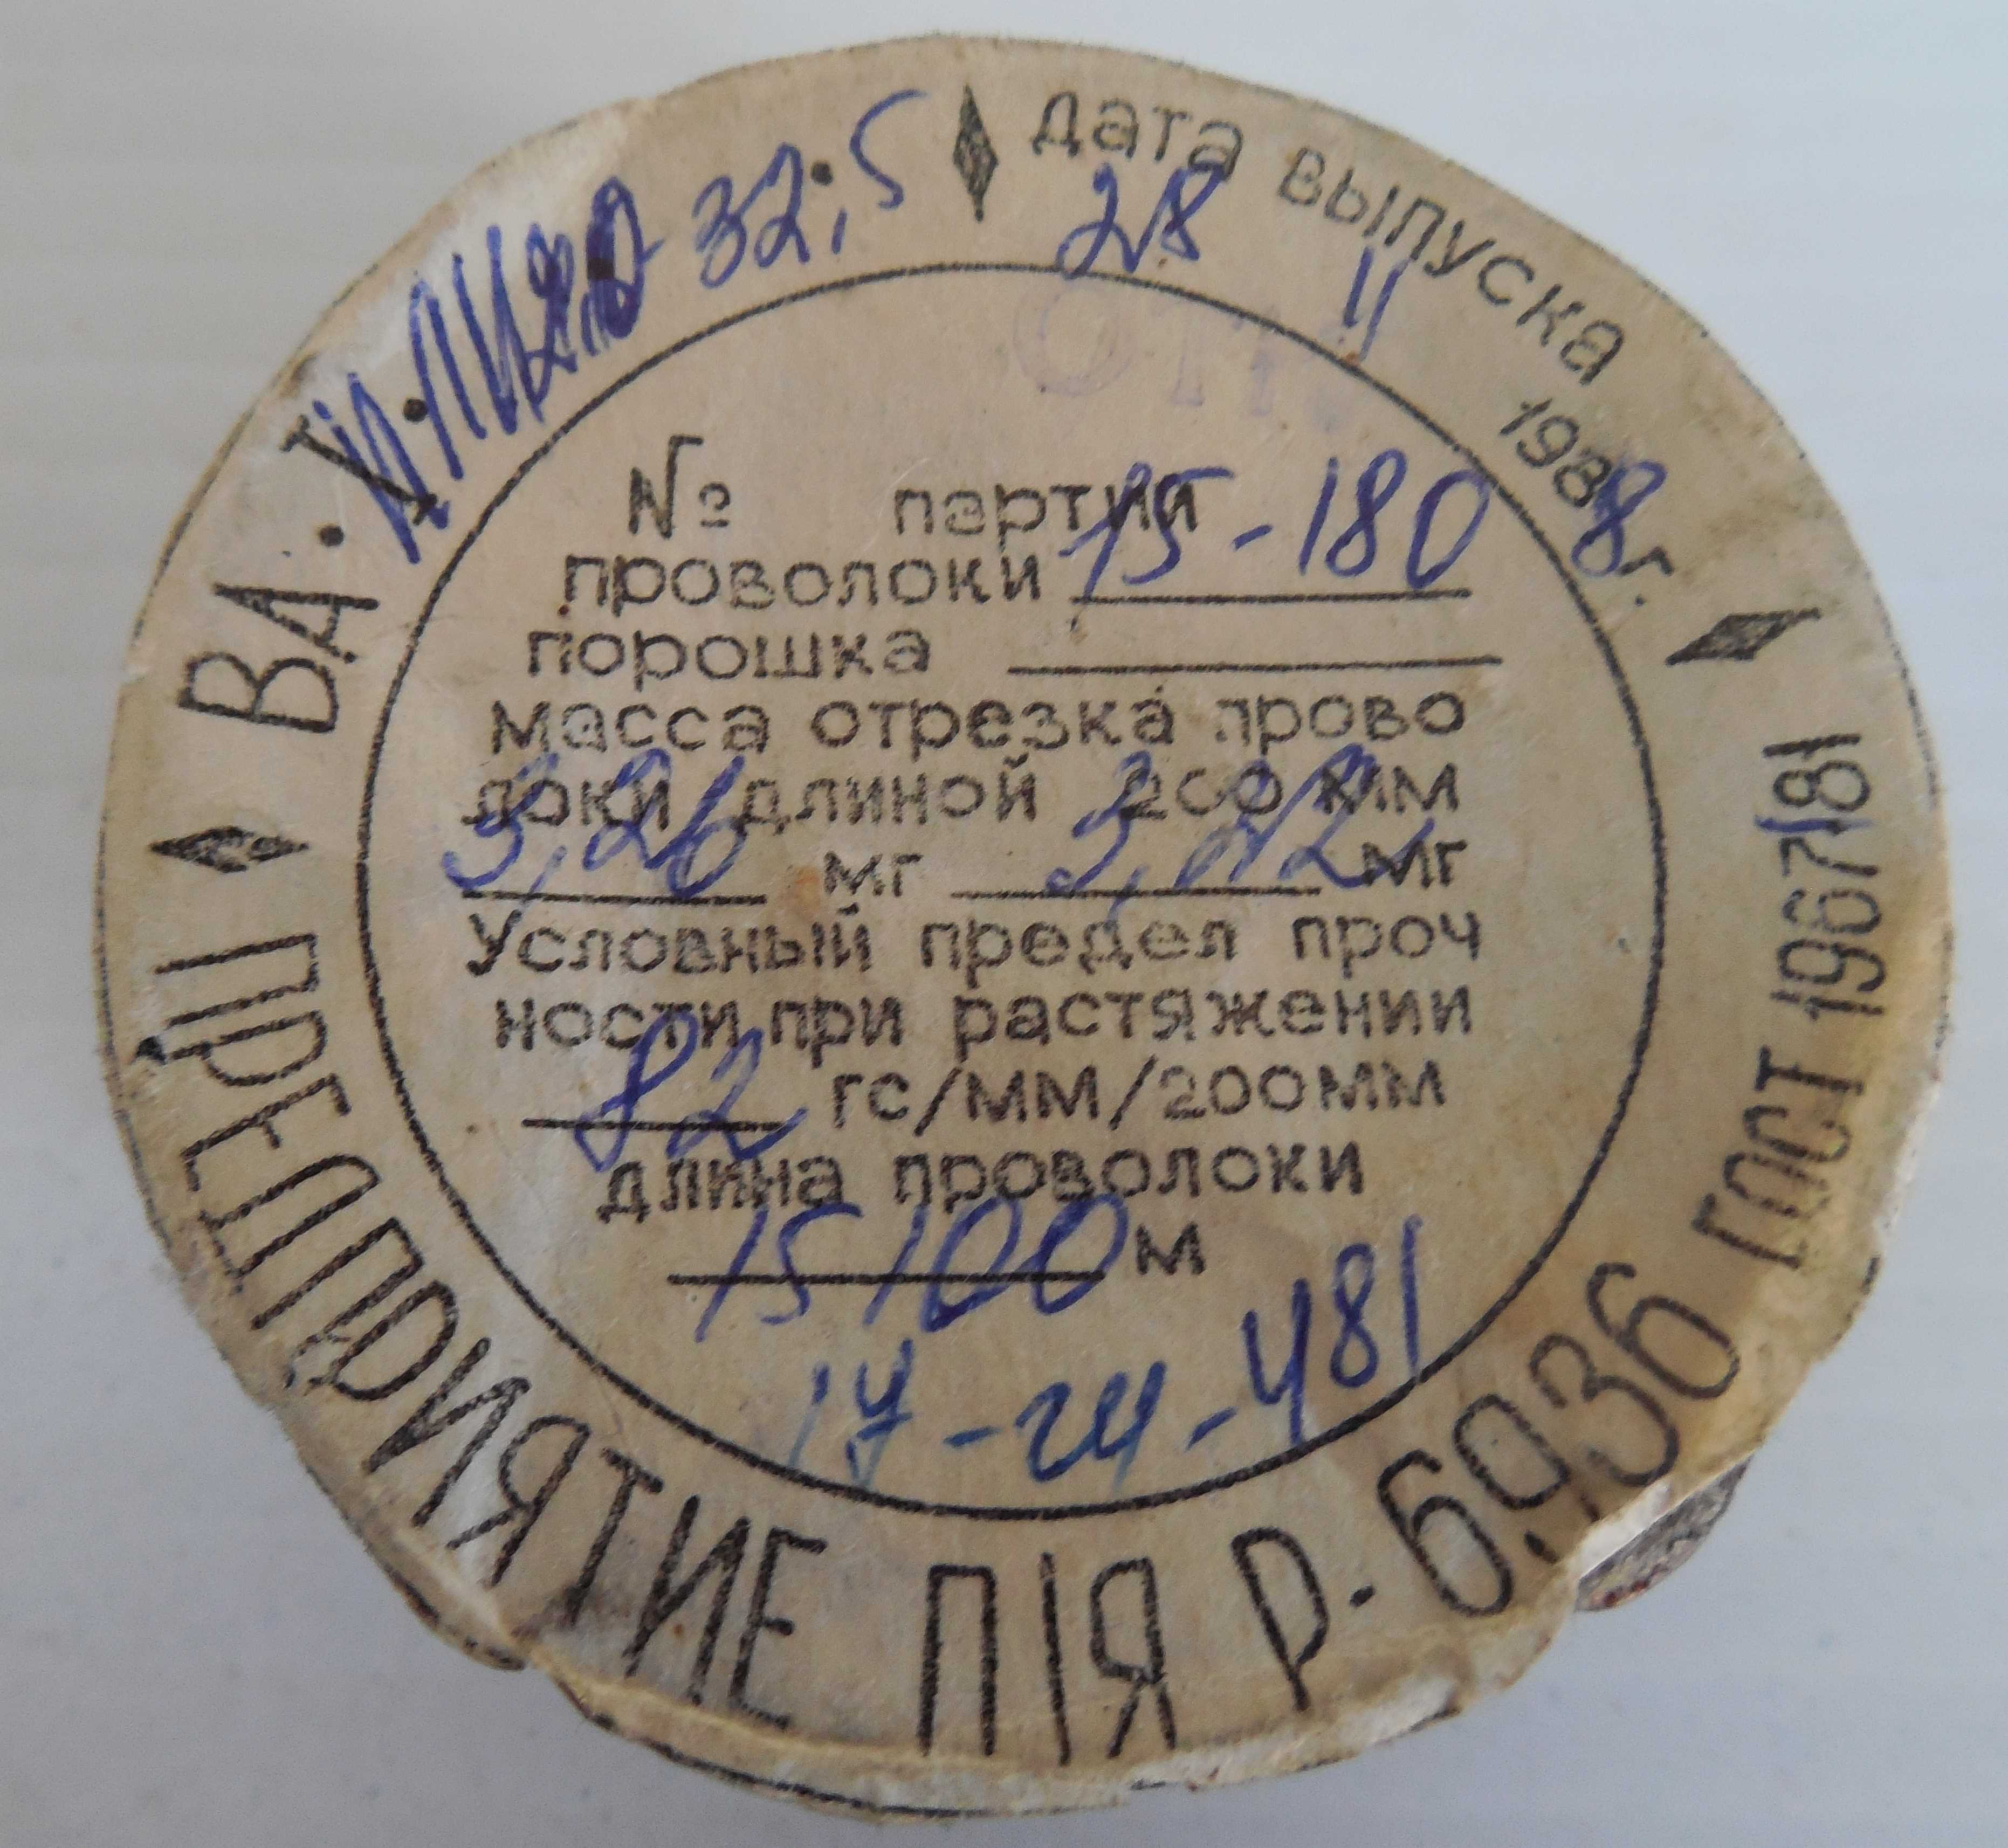 ВА. 32,5
дата выпуска
28 11
1988г.
ГОСТ 19671/81
ПРЕДПРИЯТИЕ П/Я Р-6936
№ партии
проволоки 15-180
порошка
масса отрезка прово
локи длиной 200 мм
3,26 мг мг
Условный предел проч
ности при растяжении
82 гс/мм/200мм
длина проволоки
15100 м
17-24-481